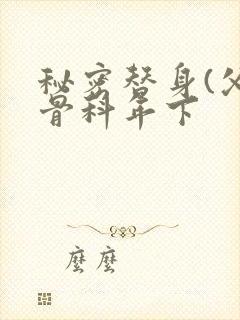 秘密替身(父
骨科年下
麼麼